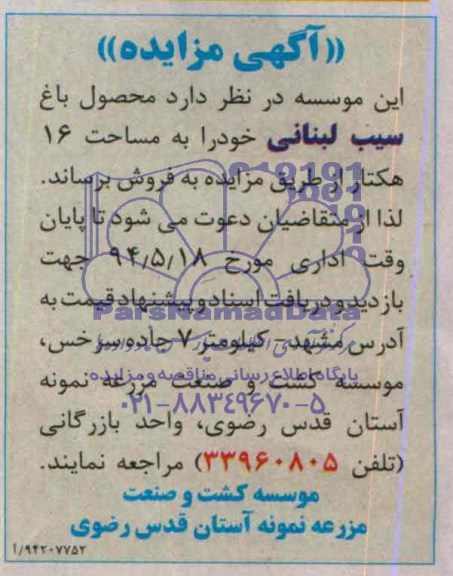 ((آگهی مزایده))
این موسسه در نظر دارد محصول باغ
سیب لبنانی خودرا به مساحت ۱۶
هکتار از طریق مزایده به فروش برساند.
لذا از متقاضیان دعوت می شود تا پایان
وقت اداری مورخ ۹۴٫۵٫۱۸ جهت
بازدید و دریافت اسناد و پیشنهاد قیمت به
ParsNamadData
آدرس مشهد- کیلومتر ۷ جاده سرخس،
پایگاه اطلاع رسانی مناقصه و مزایده
موسسه کشت و صنعت مزرعه نمونه
۰۲۱-۸۸۳۴۹۶۷۰-۵
آستان قدس رضوی، واحد بازرگانی
(تلفن ۳۳۹۶۰۸۰۵) مراجعه نمایند.
موسسه کشت و صنعت
مزرعه نمونه آستان قدس رضوی
۱/۹۴۲۰۷۷۵۲